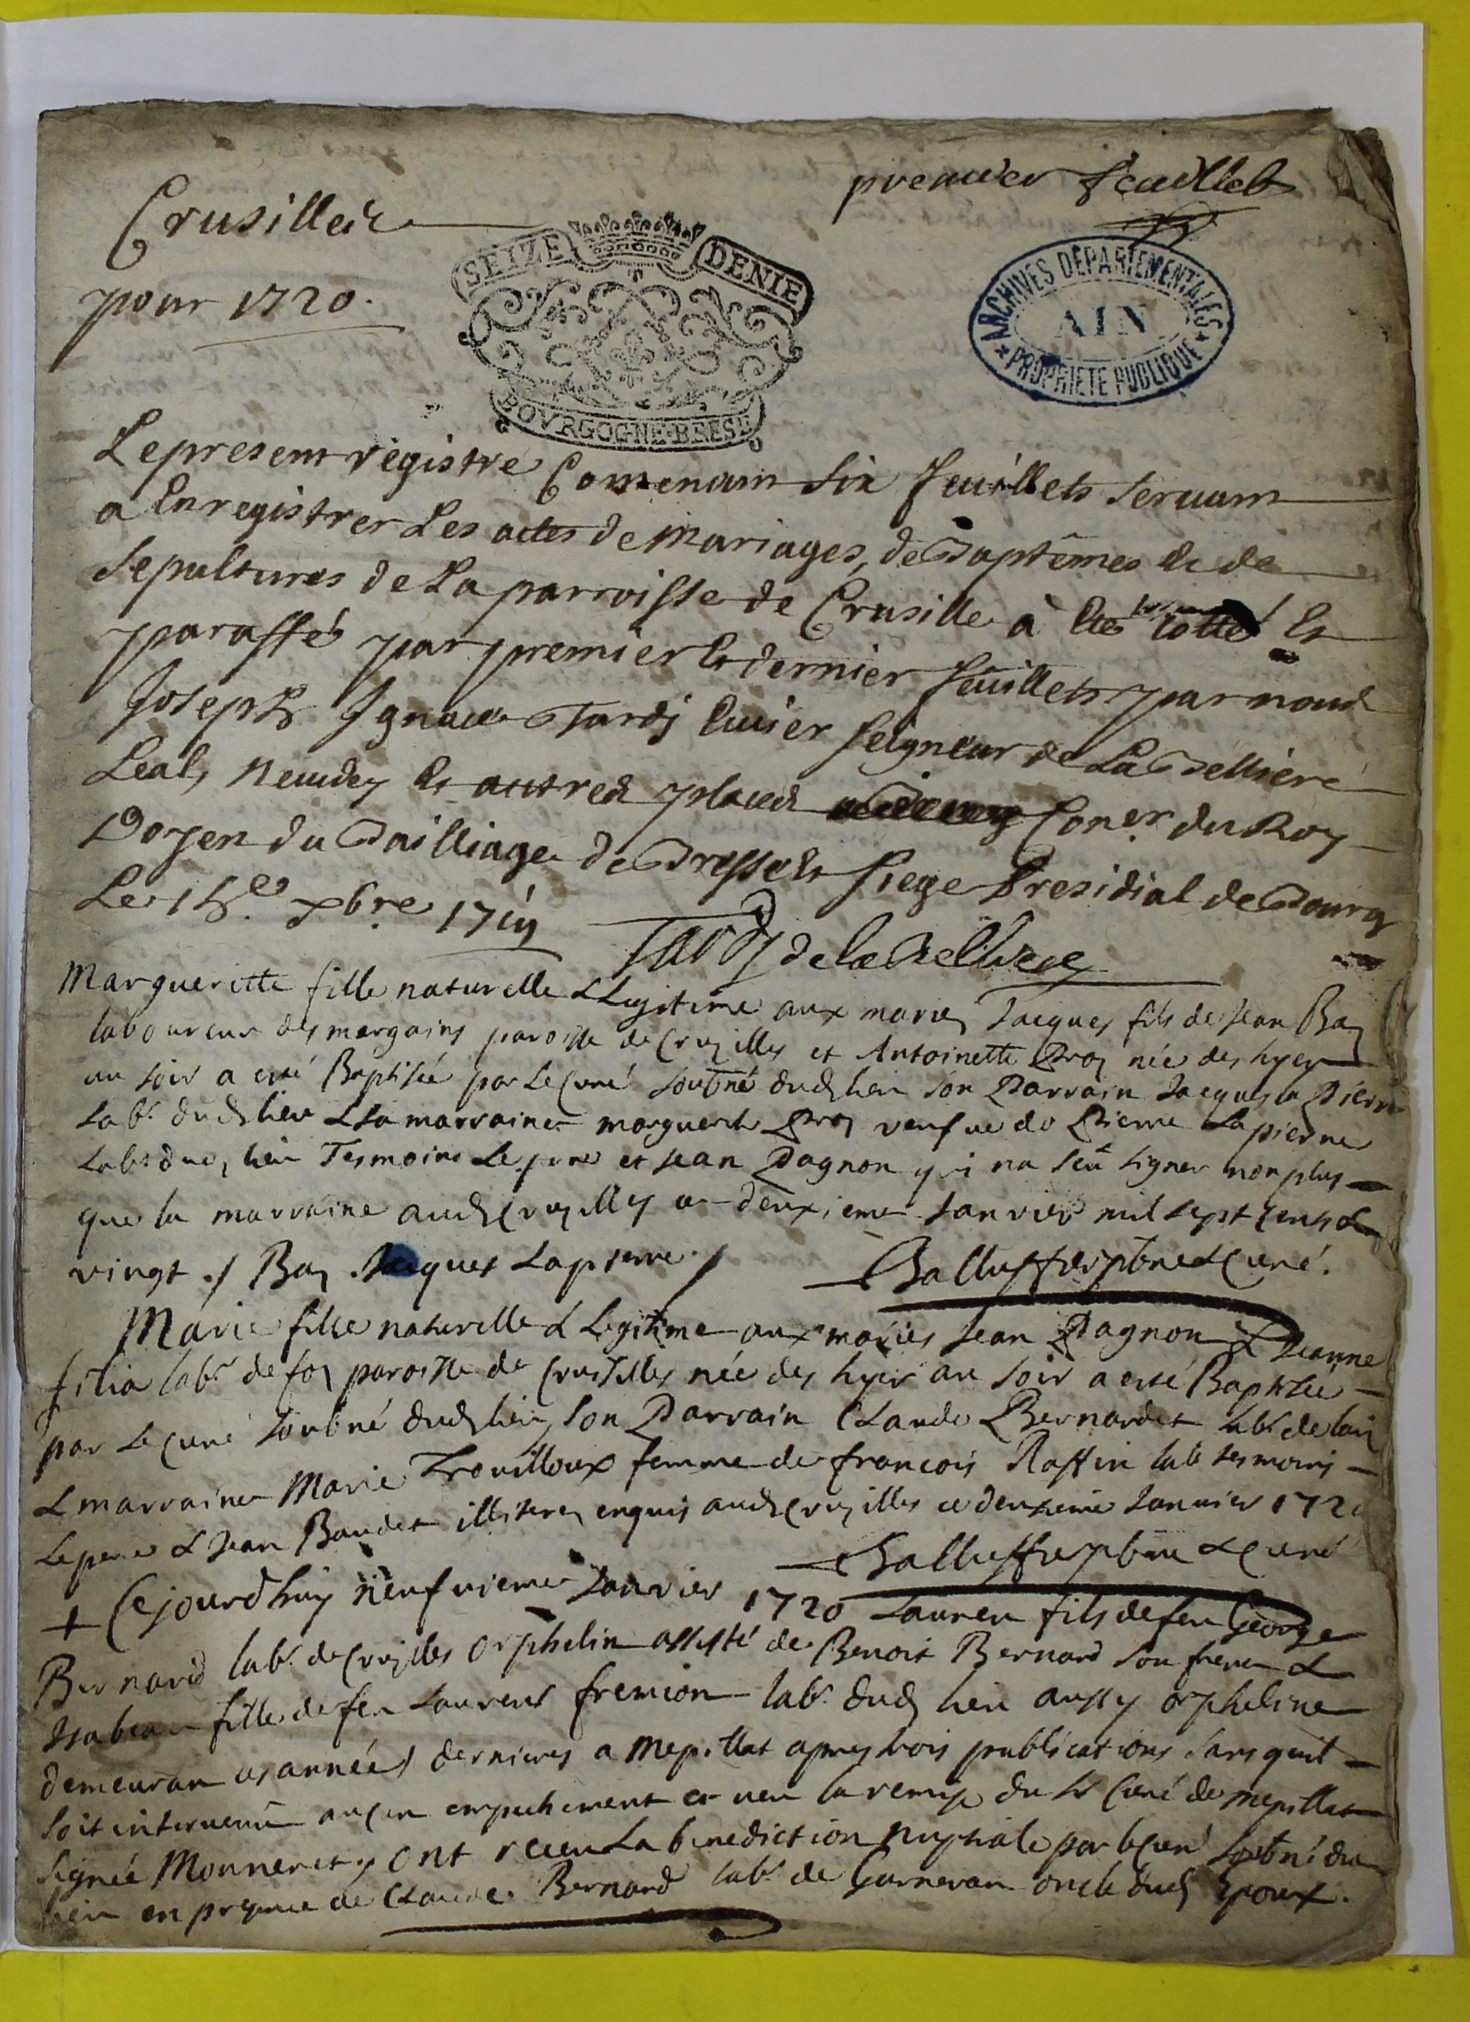 premier feuillet
Crusillec
pour 1720.
SEIZE DENIE
BOVRGOGNE·BRESE
ARCHIVES DEPARTEMENTALES
AIN
PROPRIETE PUBLIQUE
Le present regïstre Contenant six feuillets servant
a Enregistrer Les actes de Mariages, de Baptêmes et de
Sepultures de La parroisse de Crusille à Eté cotté Et
paraffé par premier Et dernier feuillets par nous
Joseph Ignace Tardy Ecuier seigneur de La Belliere
Leal, et autres places Coner. du Roy
Doyen du Bailliage de Bresse Et siege Presidial de Bourg
Le xbre 1719
Tardy de la Belliere
Margueritte fille naturelle & Legitime aux mariez Jacques fils de Jean Bay
laboureur des margains paroisse de Cruzilles et Antoinette née des hyer
au soir a esté Baptisée par Le Curé soubné dud lieu son Parrain Jacques la Pierre
Labr. dud lieu & sa marraine marguerite vefue de Pierre Lapierre
Labr dud lieu Tesmoins Le pere et Jean Pagnon qui na sceu signer non plus
que la marraine aud Cruzilles ce deuxieme Janvier mil sept cents &
vingt ./ Bay . Jacques Lapierre ./ ptre & Curé.
Marie fille naturelle & Legitime aux mariés Jean Pagnon & Jeanne
filia labr de paroisse de Crusilles née des hyer au soir a esté Baptisée
par Le Curé soubné dud lieu, son Parrain Claude Bernardet labr de
& marraine Marie Trouilloux femme de francois Raffin labr tesmoins
Le pere & Jean Baudet illiterez enquis aud Cruzilles ce deuxieme Januier 1720
ptre & Curé
+ Cejourdhuy neufvieme Janvier 1720 Laurent fils de feu George
Bernard labr. de Cruzilles orphelin assisté de Benoit Bernard son frere &
Isabeau fille de feu Laurent fremion labr. dud lieu aussy orpheline
demeurant es années dernieres a Mepillat apres trois publications sans quil
soit intervenu aucun empechement et veu la remise du Sr Curé de mepillat
signée Monneret, ont receu La benediction Nuptiale par le Curé soubné dud
lieu en presence de Claude Bernard labr. de Garneran oncle dud Epoux.